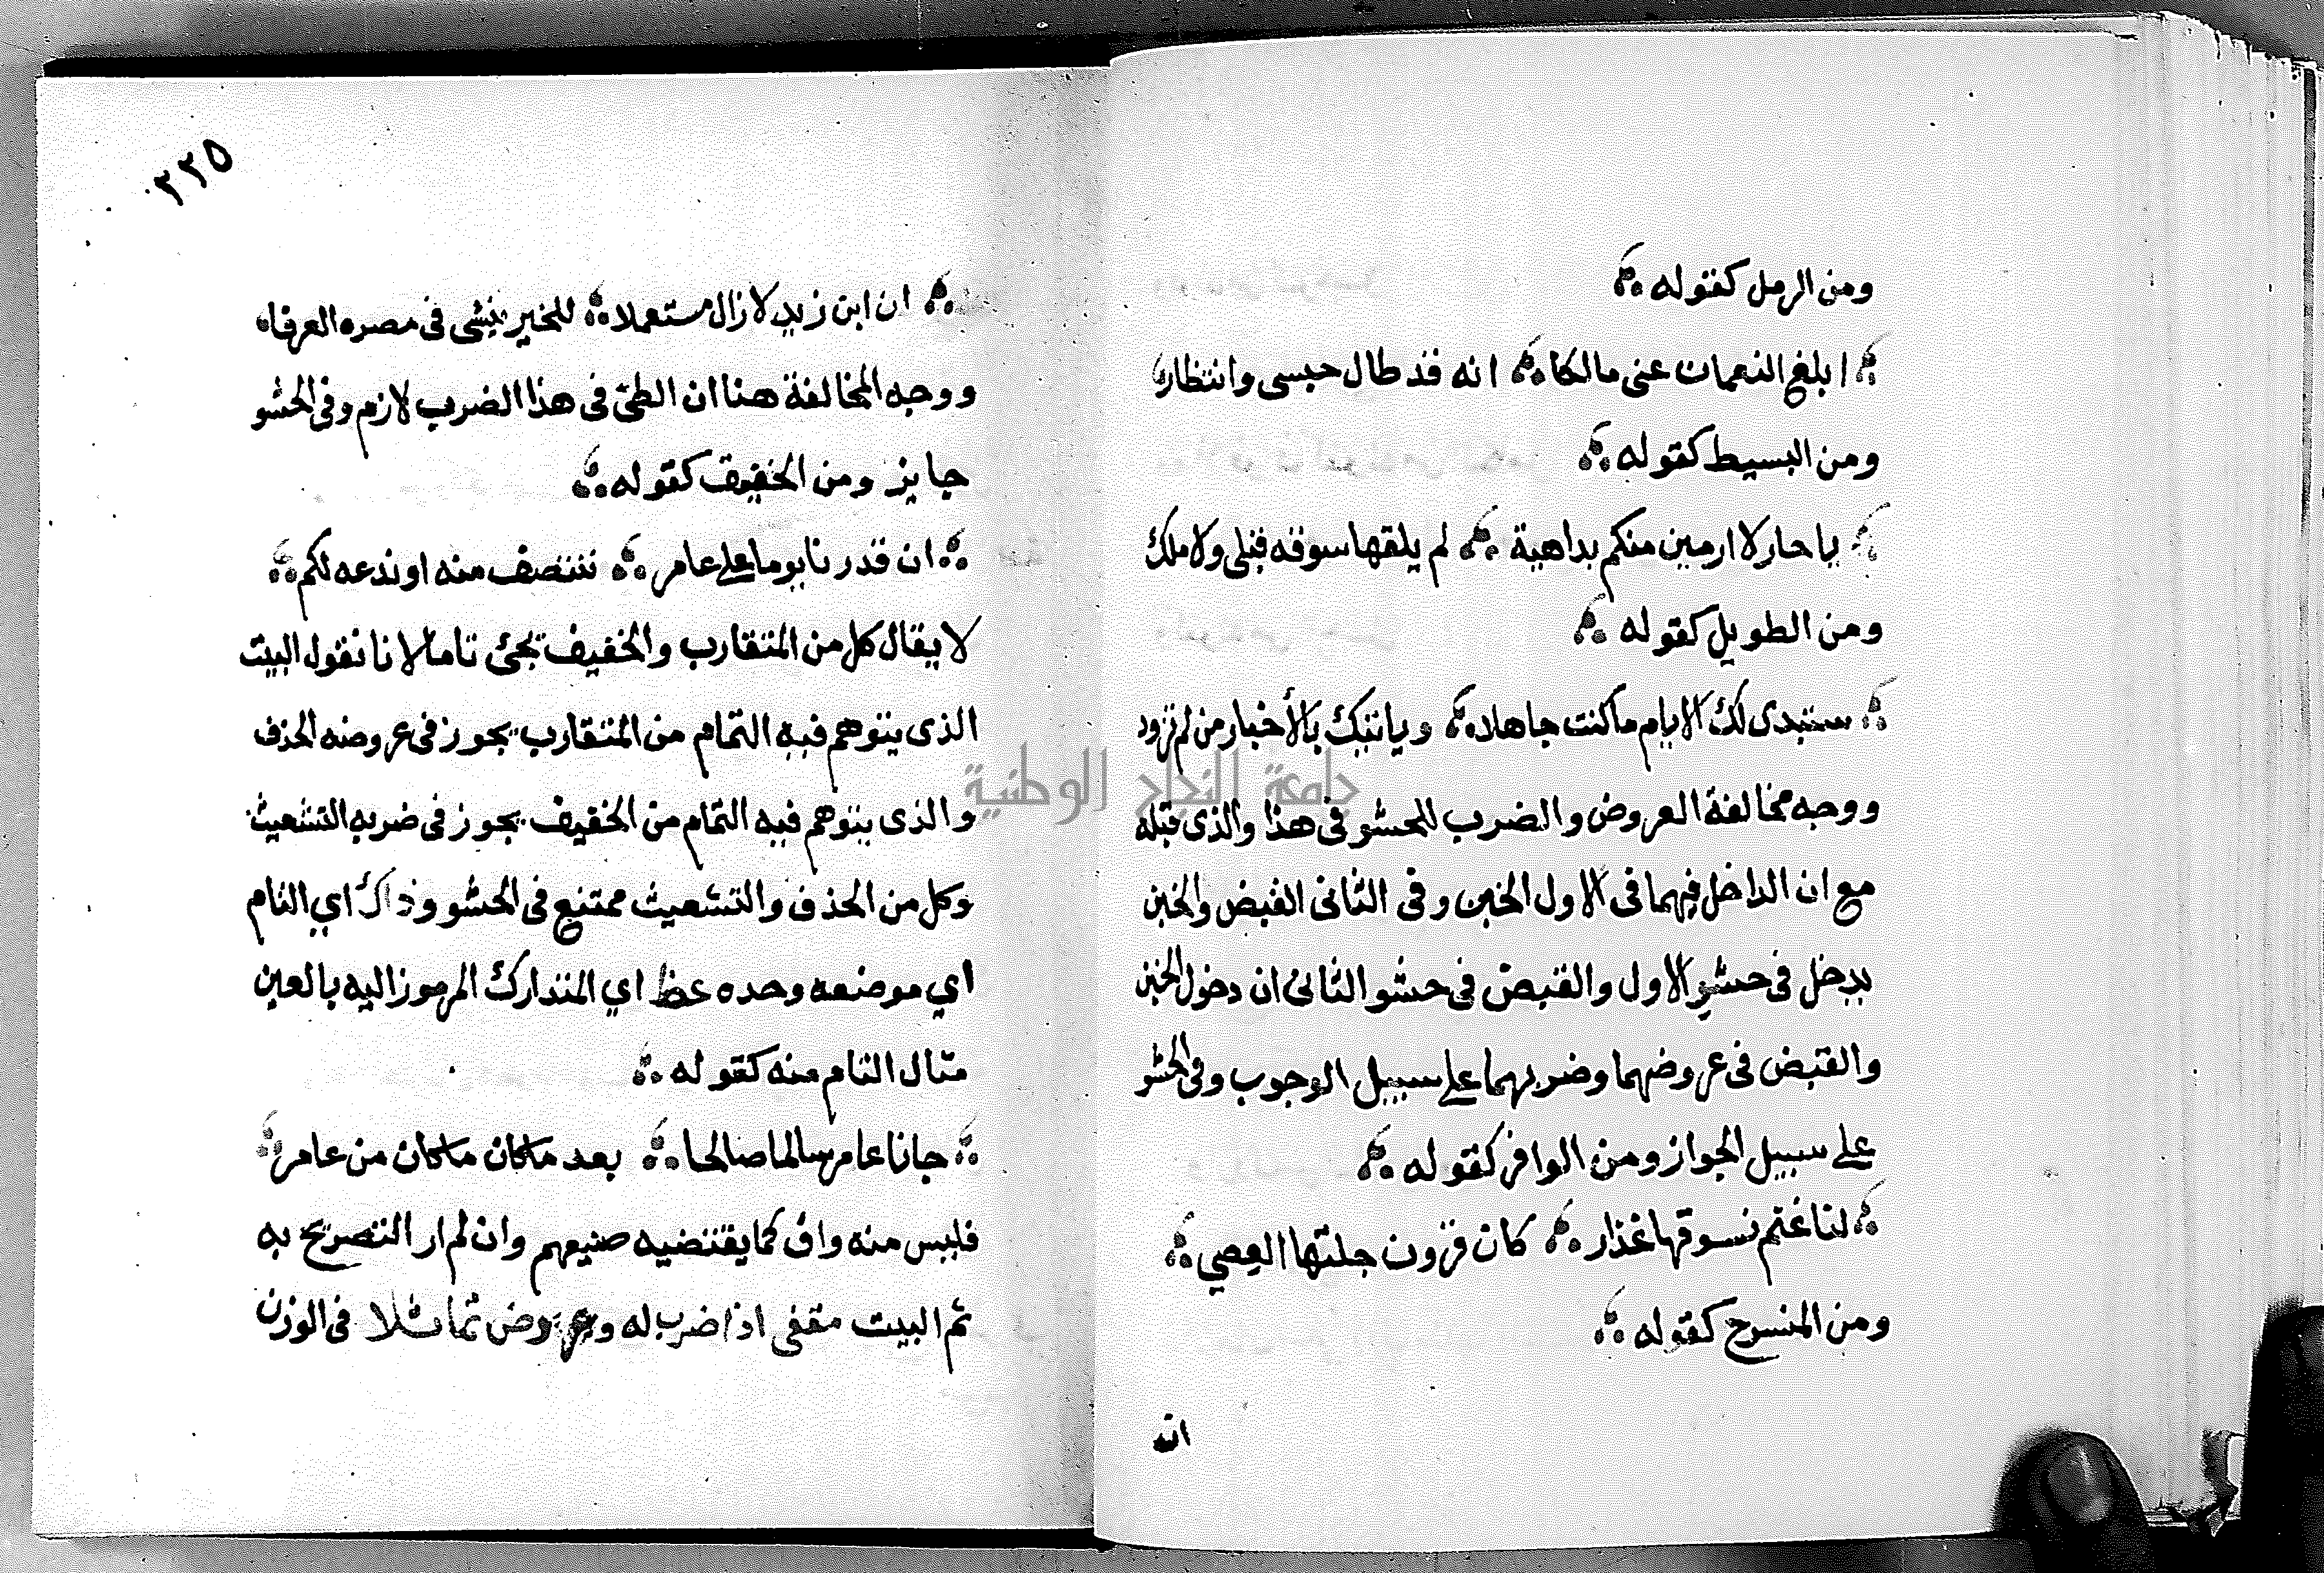 ومن الرمل كقوله
ابلغ النعمان عنى مالكا انه قد طال حبسى وانتظار
ومن البسيط كقوله
يا حار لا ارمين منكم بداهية لم يلقها سوقه قبلى ولا ملك
ومن الطويل كقوله
ستبدى لك الايام ما كنت جاهلا وياتيك بالأخبار من لم تزود
ووجه مخالفة العروض والضرب للحشو فى هذا والذى قبله
مع ان الداخل فيهما فى الاول الخبن وفى الثانى القبض والخبن
يدخل فى حشو الاول والقبض فى حشو الثانى ان دخول الخبن
والقبض فى عروضهما وضربهما على سبيل الوجوب وفى الحشو
على سبيل الجواز ومن الوافر كقوله
لنا غنم نسوقها غذار كان قرون جلتها العصي
ومن المنسرح كقوله
ان
٢٢٥
ان ابن زيد لا زال مستعملا للخير يفشى فى مصره العرفا
ووجه المخالفة هنا ان الطى فى هذا الضرب لازم وفى الحشو
جايز ومن الخفيف كقوله
ان قدرنا يوما على عامر ننتصف منه او ندعه لكم
لا يقال كل من المتقارب والخفيف تجئ تاما لانا نقول البيت
الذى يتوهم فيه التمام من المتقارب يجوز فى عروضه الحذف
والذى يتوهم فيه التمام من الخفيف يجوز فى ضربه التشعيث
وكل من الحذف والتشعيث ممتنع فى الحشو وذاك اي التام
اي موضعه وحده عظ اي المتدارك المرموز اليه بالعين
مثال التام منه كقوله
جانا عامر سالما صالحا بعد ماكان ماكان من عامر
فليس منه واف كما يقتضيه صنيعهم وان لم ار التصريح به
ثم البيت مقفى اذا ضرب له وعروض تماثلا فى الوزن
جامعة النجاح الوطنية